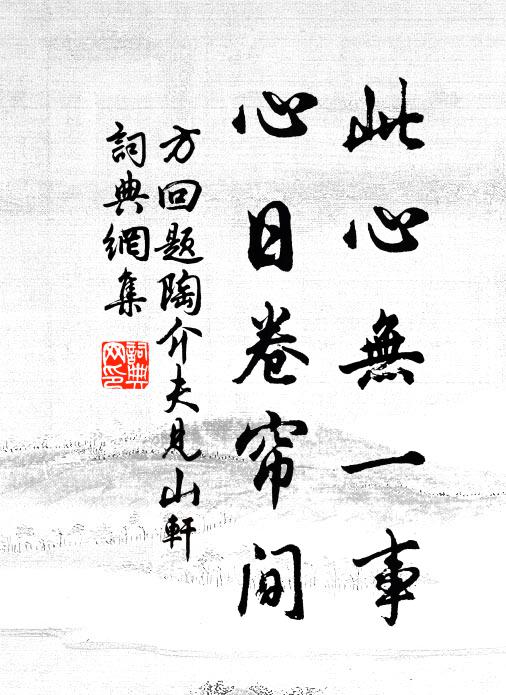 此心無一事
心日卷帘间
方回题陶介夫見山軒
詞典網集
詞典
网印